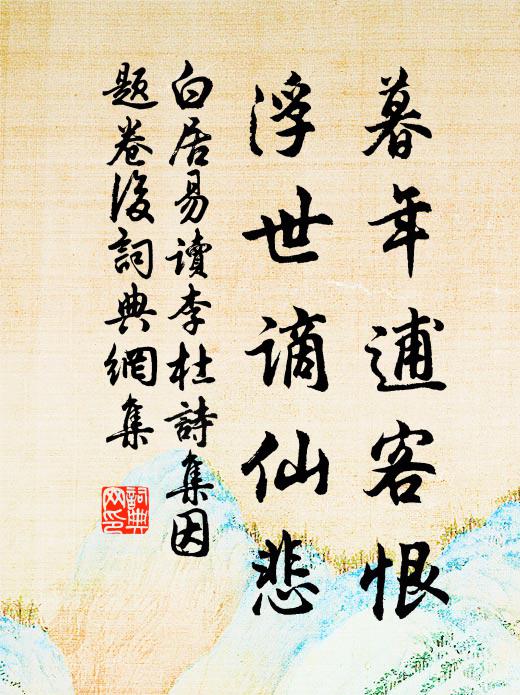 暮年逋客恨
浮世谪仙悲
白居易讀李杜詩集因
題卷後詞典網集
詞典
网印